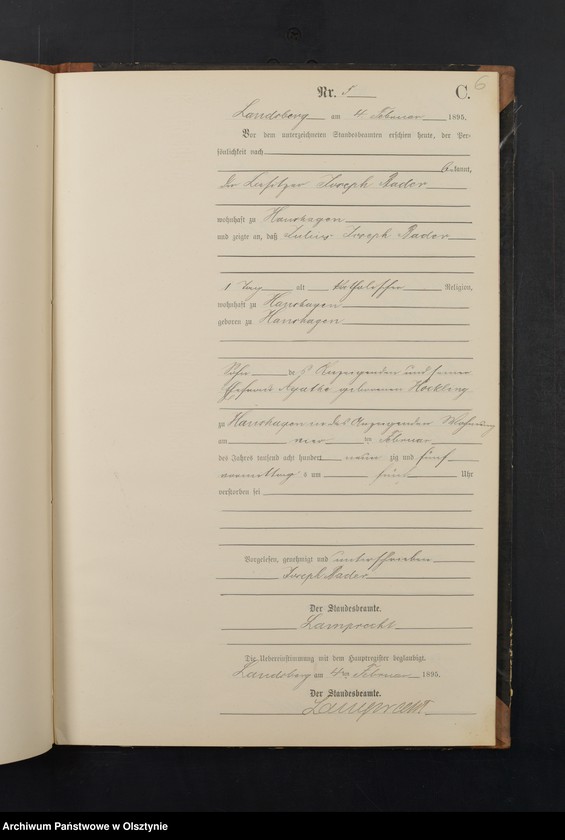 6
Nr. 5 C.
Landsberg am 4 Februar 1895.
Vor dem unterzeichneten Standesbeamten erschien heute, der Per-
sönlichkeit nach
bekannt,
der Besitzer Joseph Bader
wohnhaft zu Hanshagen
und zeigte an, daß Julius Joseph Bader
1 Tag alt katholischer Religion,
wohnhaft zu Hanshagen
geboren zu Hanshagen
Sohn des Anzeigenden und seiner
Ehefrau Agathe geborenen Hockling
zu Hanshagen in des Anzeigenden Wohnung
am vier ten Februar
des Jahres tausend acht hundert neun zig und fünf
vormittags um fünf Uhr
verstorben sei
Vorgelesen, genehmigt und unterschrieben
Joseph Bader
Der Standesbeamte.
Lamprecht
Die Uebereinstimmung mit dem Hauptregister beglaubigt.
Landsberg am 4ten Februar 1895.
Der Standesbeamte.
Lamprecht
Archiwum Państwowe w Olsztynie